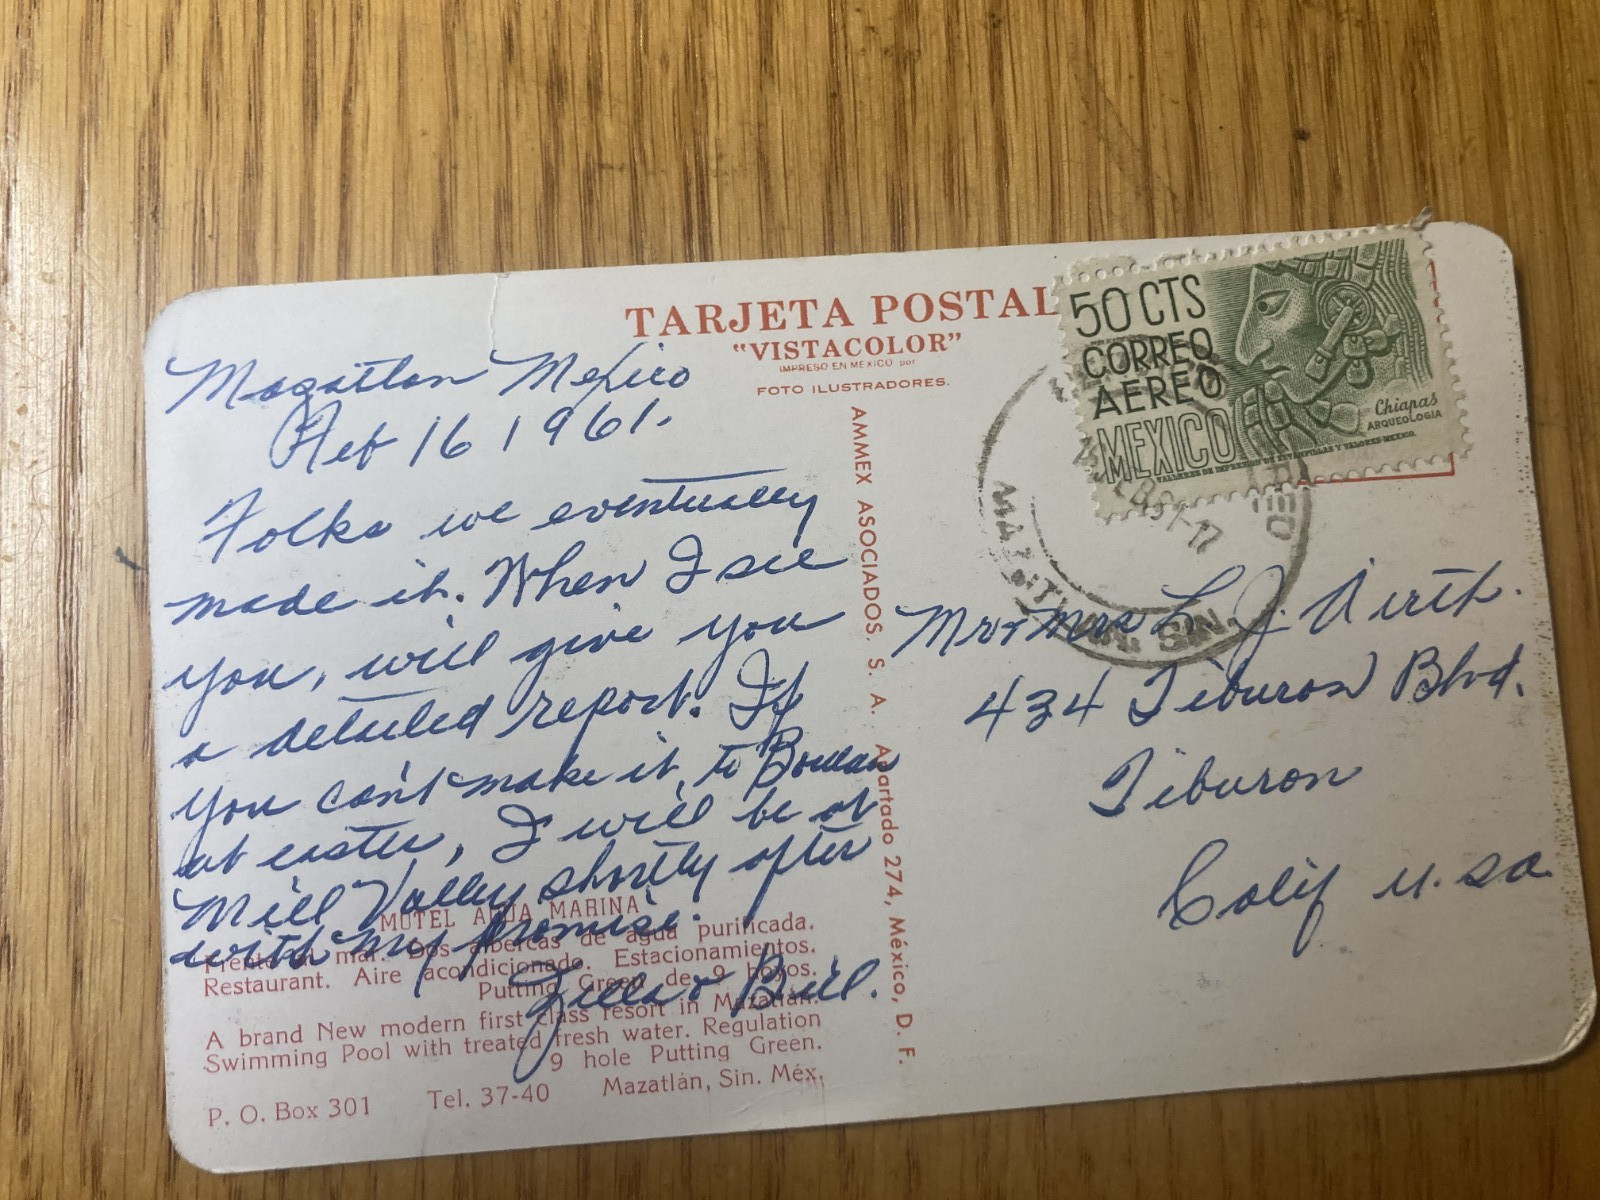 TARJETA POSTAL
"VISTACOLOR"
IMPRESO EN MEXICO por
FOTO ILUSTRADORES.
50 CTS
CORREO
AEREO
MEXICO
Chiapas
ARQUEOLOGIA
TALLERES DE IMPRESION DE ESTAMPILLAS Y VALORES-MEXICO.
MAZATLAN, SIN.
Mazatlan Mexico
Feb 16 1961.
Folks we eventually
made it. When I see
you, will give you
a detailed report. If
you can't make it, to
at easter, I will be at
Mill Valley shortly after
with my promise.
Zella & Bill.
AMMEX ASOCIADOS. S. A. Apartado 274, México, D. F.
Mr & Mrs L. J.
434 Tiburon Blvd.
Tiburon
Calif u.sa.
MOTEL AGUA MARINA
Frente al mar. Dos albercas de agua purificada.
Restaurant. Aire acondicionado. Estacionamientos.
Putting Green de 9 hoyos.
A brand New modern first class resort in Mazatlán.
Swimming Pool with treated fresh water. Regulation
9 hole Putting Green.
P. O. Box 301 Tel. 37-40 Mazatlán, Sin. Méx.